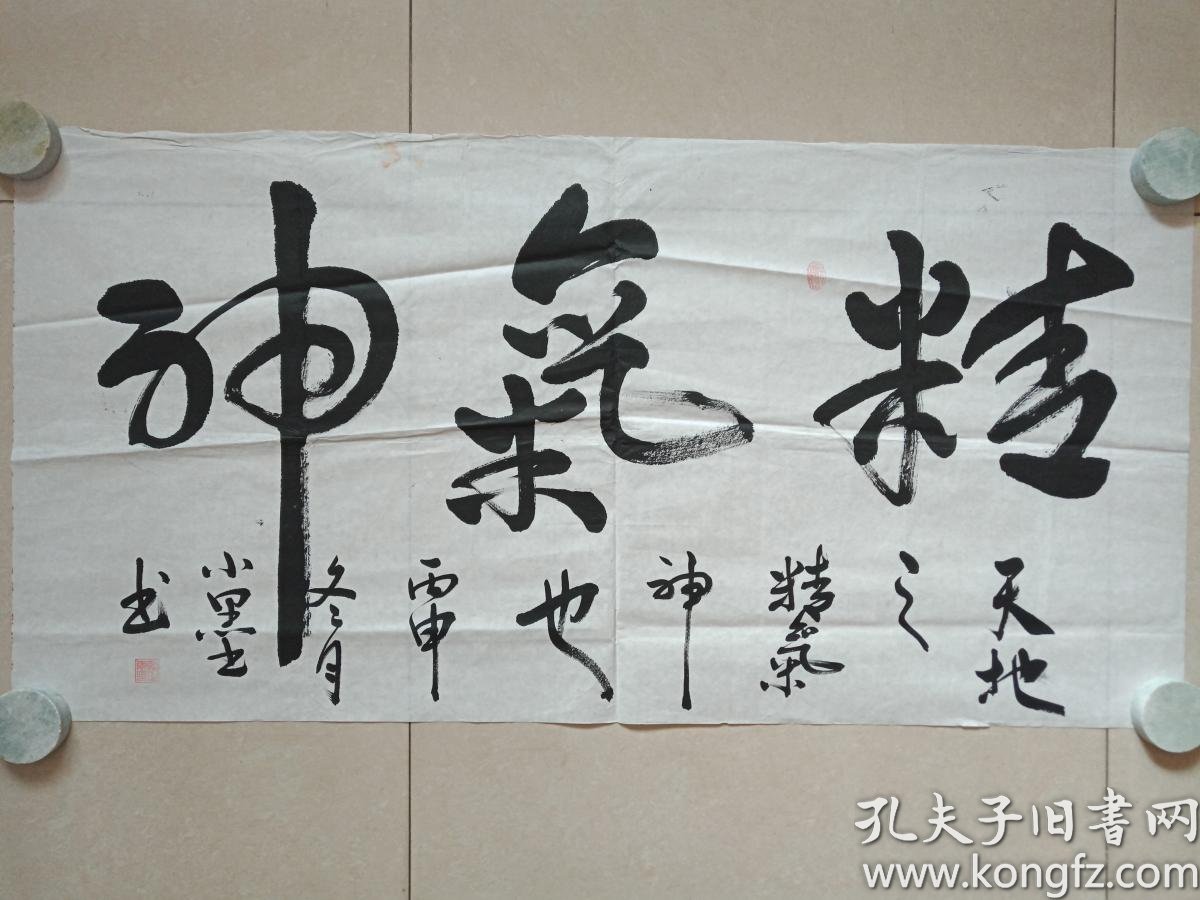 精氣神
天地
之
精氣
神
也
丙申
冬月
小墨
书
孔夫子旧書网
www.kongfz.com